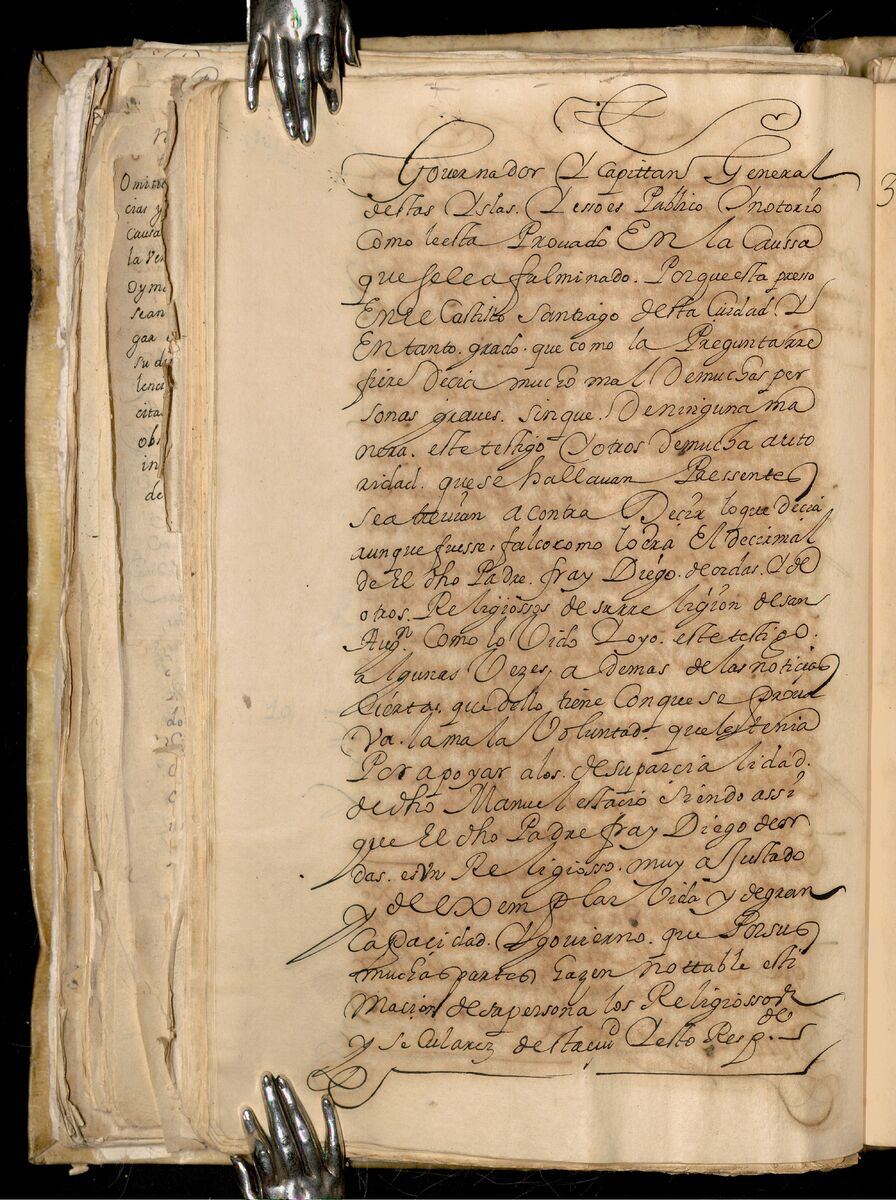 Governador Y Capittan General
destas Yslas. Y esso es Publico Ynotorio
Como leesta Provado En la Caussa
que se le a fulminado. Porque esta presso
En el Castillo Santiago desta Ciudad. Y
En tanto. grado. que como la Pregunta rre
fiere Decia mucho mal Demuchas per
sonas graves. sin que. De ninguna ma
nera. este testigo Y otros Demucha auto
ridad. que se hallauan Pressentes
se atreuian a contra Decir lo que decia
aunque fuesse, falço como lo era El decir mal
de El dho Padre. fray Diego. de ordas. Y de
otros. Religiossos de su rreligion de san
Augn. Como lo Vido Y oyo. este testigo.
algunas Vezes, a demas de las noticias
ciertas. que dello tiene Con que se prue
Va. la mala Voluntad. que les tenia
Por apoyar a los. de su parcialidad.
de dho Manuel estacio siendo assi
que El dho Padre fray Diego de or
das. es Vn Religiosso. muy aJustado
y de exemplar Vida y de gran
Capacidad. Y gouierno. que Por sus
muchas partes hazen nottable esti
Macion de su persona los Religiossos
y seculares desta ciud Y esto Respde
3
Omitie
cias y
Causa
la Ver
Dyme
sean
gar
su di
lenc
cita
obs
in
de